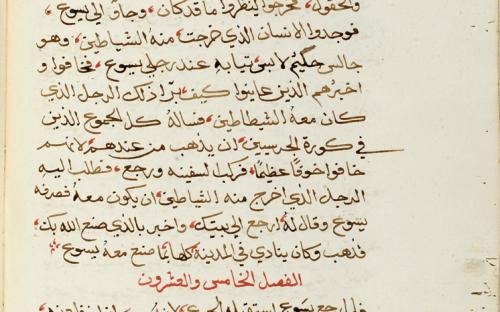 والحقول، فخرجوا لينظروا ما قد كان، وجاوْ الى يسوع،
فوجدوا الانسان الذي خرجت، منه الشياطين، وهو
جالس حكيمْ لابسْ ثيابه عند رجلي يسوع، فخافوا و
اخبرهم الذين عاينوا كيف برا ذلك الرجل الذي
كان معهُ الشيطاطين، فساله كل الجموع الذين
في كورة الجرسيين، ان يذهب من عندهم، لانهم
خافوا خوفًا عظيمًا، فركب السفينه ورجع، فطلب اليه
الرجل الذي اخرج منه الشياطين، ان يكون معهُ فصرفه
يسوع وقال لهُ ارجع الى بيتك، واخبر بالذي صنع الله بك،
فذهب وكان ينادي في المدينة كلها بما صنع معهُ يسوع
الفصل الخامس والعشرون
فلما رجع يسوع استقبله الجمع، لانهم